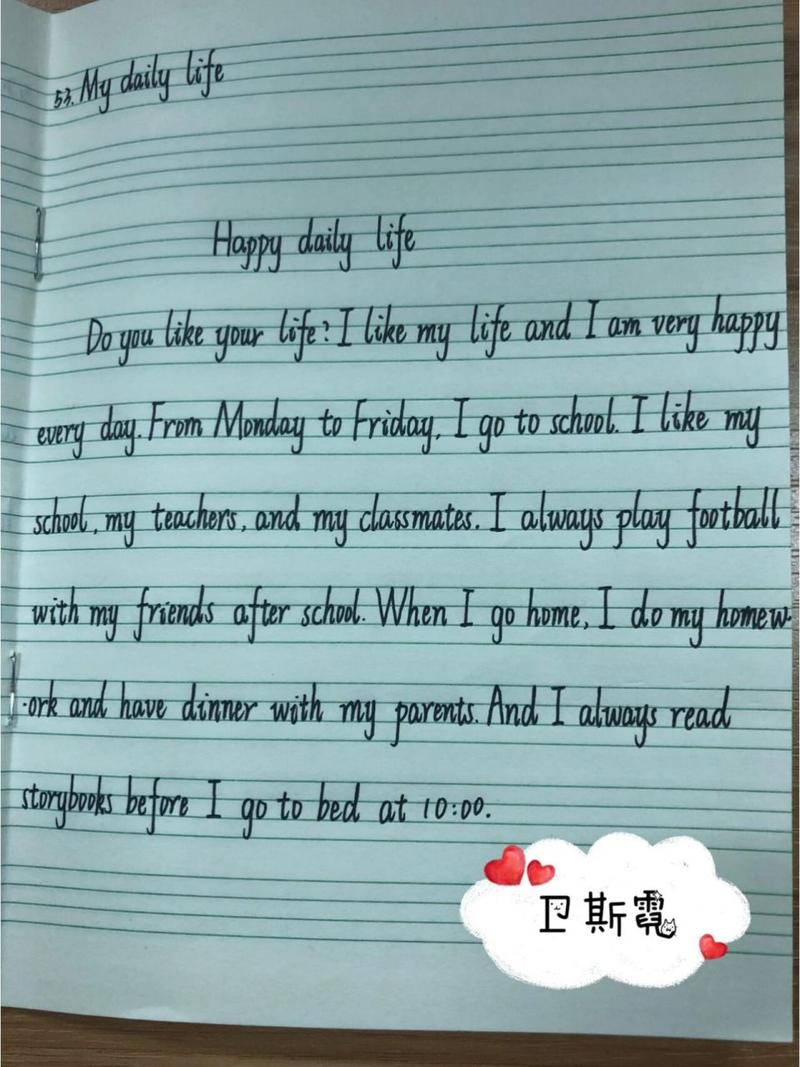 53. My daily life
Happy daily life
Do you like your life? I like my life and I am very happy
every day. From Monday to Friday, I go to school. I like my
school, my teachers, and my classmates. I always play football
with my friends after school. When I go home, I do my homew-
-ork and have dinner with my parents. And I always read
storybooks before I go to bed at 10:00.
卫斯霓